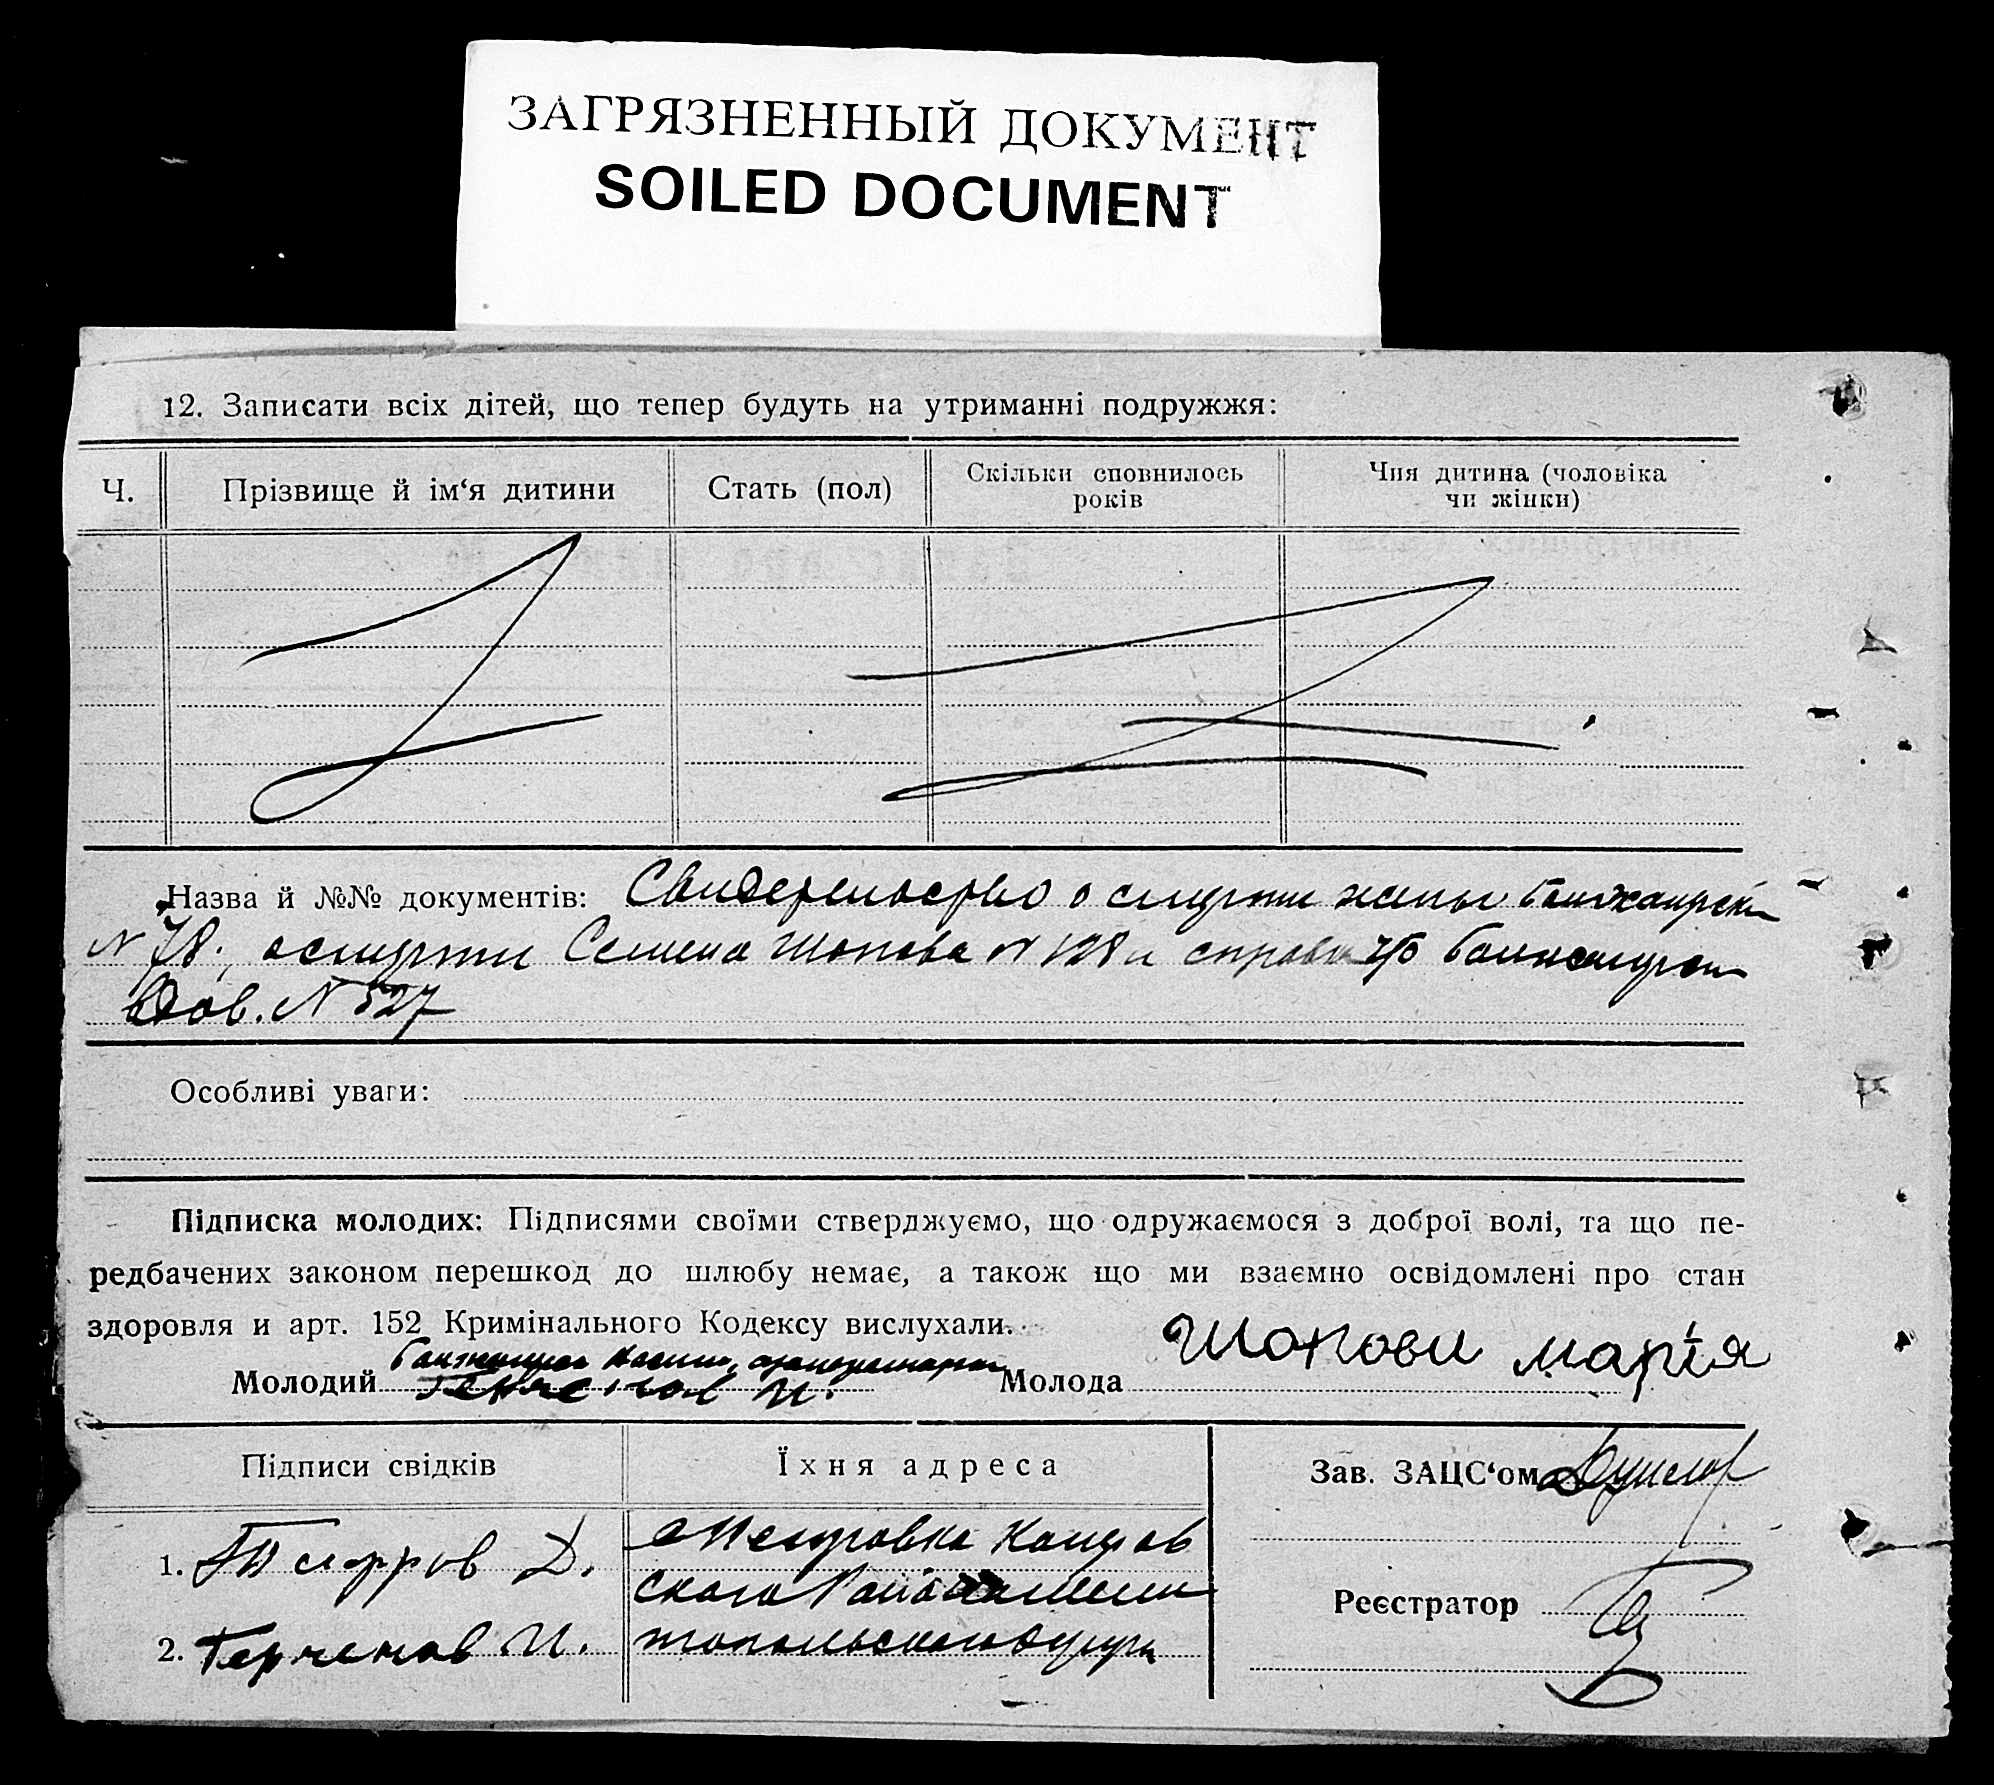 ЗАГРЯЗНЕННЫЙ ДОКУМЕНТ
SOILED DOCUMENT
12. Записати всіх дітей, що тепер будуть на утриманні подружжя:
Ч.
Прізвище й ім‘я дитини
Стать (пол)
Скільки сповнилось
років
Чия дитина (чоловіка
чи жінки)
Назва й №№ документів: Свидетельство о смерти жены
N 78, о смерти Семена Шопова N 128 и справка
вдов. N 527
Особливі уваги:
Підписка молодих: Підписями своїми стверджуємо, що одружаємося з доброї волі, та що пе-
редбачених законом перешкод до шлюбу немає, а також що ми взаємно освідомлені про стан
здоровля и арт. 152 Кримінального Кодексу вислухали.
Молодий
Молода Шопови Марія
Підписи свідків
Їхня адреса
Зав. ЗАЦС‘ом
1. Д.
Реєстратор
2. И.